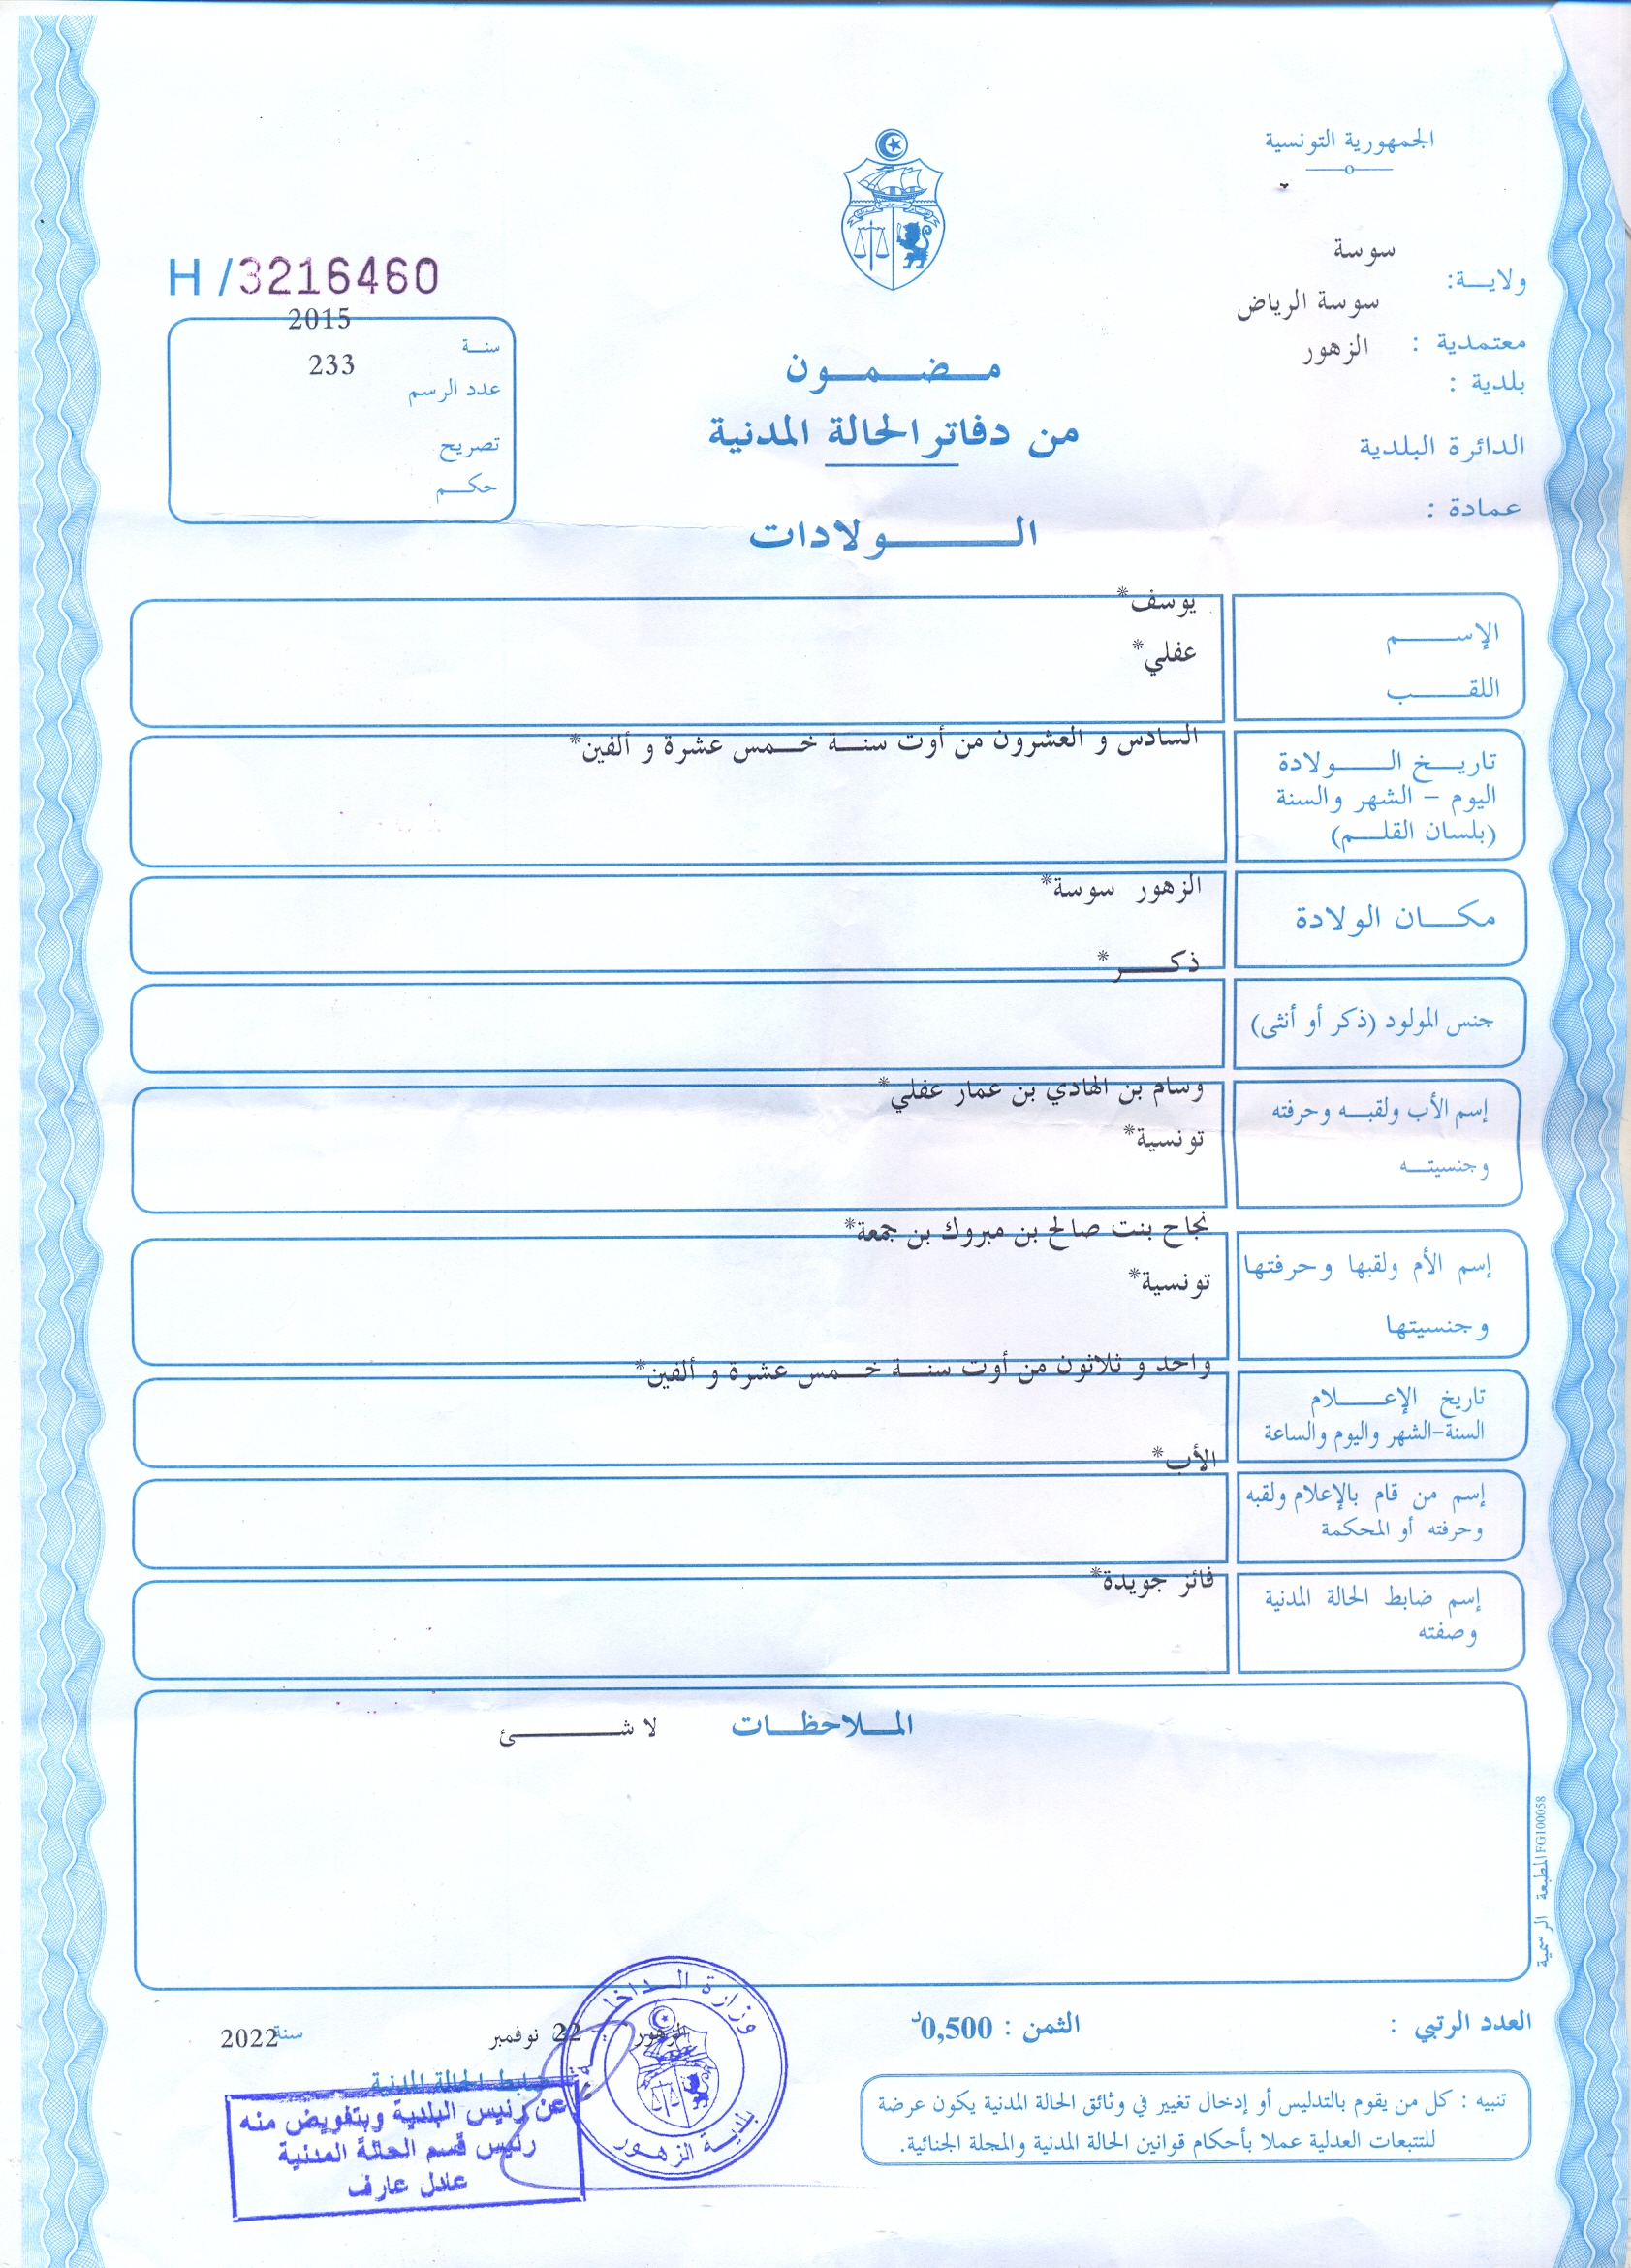 الجمهورية التونسية
ولايـــة: سوسة
معتمدية : سوسة الرياض
بلدية : الزهور
الدائرة البلدية
عمادة :
H /3216460
سنــة 2015
عدد الرسم 233
تصريح
حكــم
مـــضـــمـــون
من دفاتر الحالة المدنية
الــــــولادات
الإســـــــم يوسف*
اللقـــــــب عفلي*
تاريـــخ الـــــولادة السادس و العشرون من أوت سنـــة خـــمس عشرة و ألفين*
اليوم - الشهر والسنة
(بلسان القلـــم)
مكـــان الولادة الزهور سوسة*
جنس المولود (ذكر أو أنثى) ذكـــــر*
إسم الأب ولقبــه وحرفته وسام بن الهادي بن عمار عفلي*
وجنسيتــه تونسية*
إسم الأم ولقبها وحرفتها نجاح بنت صالح بن مبروك بن جمعة*
وجنسيتها تونسية*
تاريخ الإعـــــلام واحد و ثلاثون من أوت سنـــة خـــمس عشرة و ألفين*
السنة-الشهر واليوم والساعة
إسم من قام بالإعلام ولقبه الأب*
وحرفته أو المحكمة
إسم ضابط الحالة المدنية فائز جويدة*
وصفته
المــلاحظــات لا شـــــــــئ
المطبعة الرسمية FG100058
العدد الرتبي :
الثمن : 0,500د
الزهور 22 نوفمبر سنة 2022
ضابط الحالة المدنية
وزارة الـــداخليـــة
بلديـــة الزهـــور
عن رئيس البلدية وبتفويض منه
رئيس قسم الحالة المدنية
عادل عارف
تنبيه : كل من يقوم بالتدليس أو إدخال تغيير في وثائق الحالة المدنية يكون عرضة
للتتبعات العدلية عملا بأحكام قوانين الحالة المدنية والمجلة الجنائية.